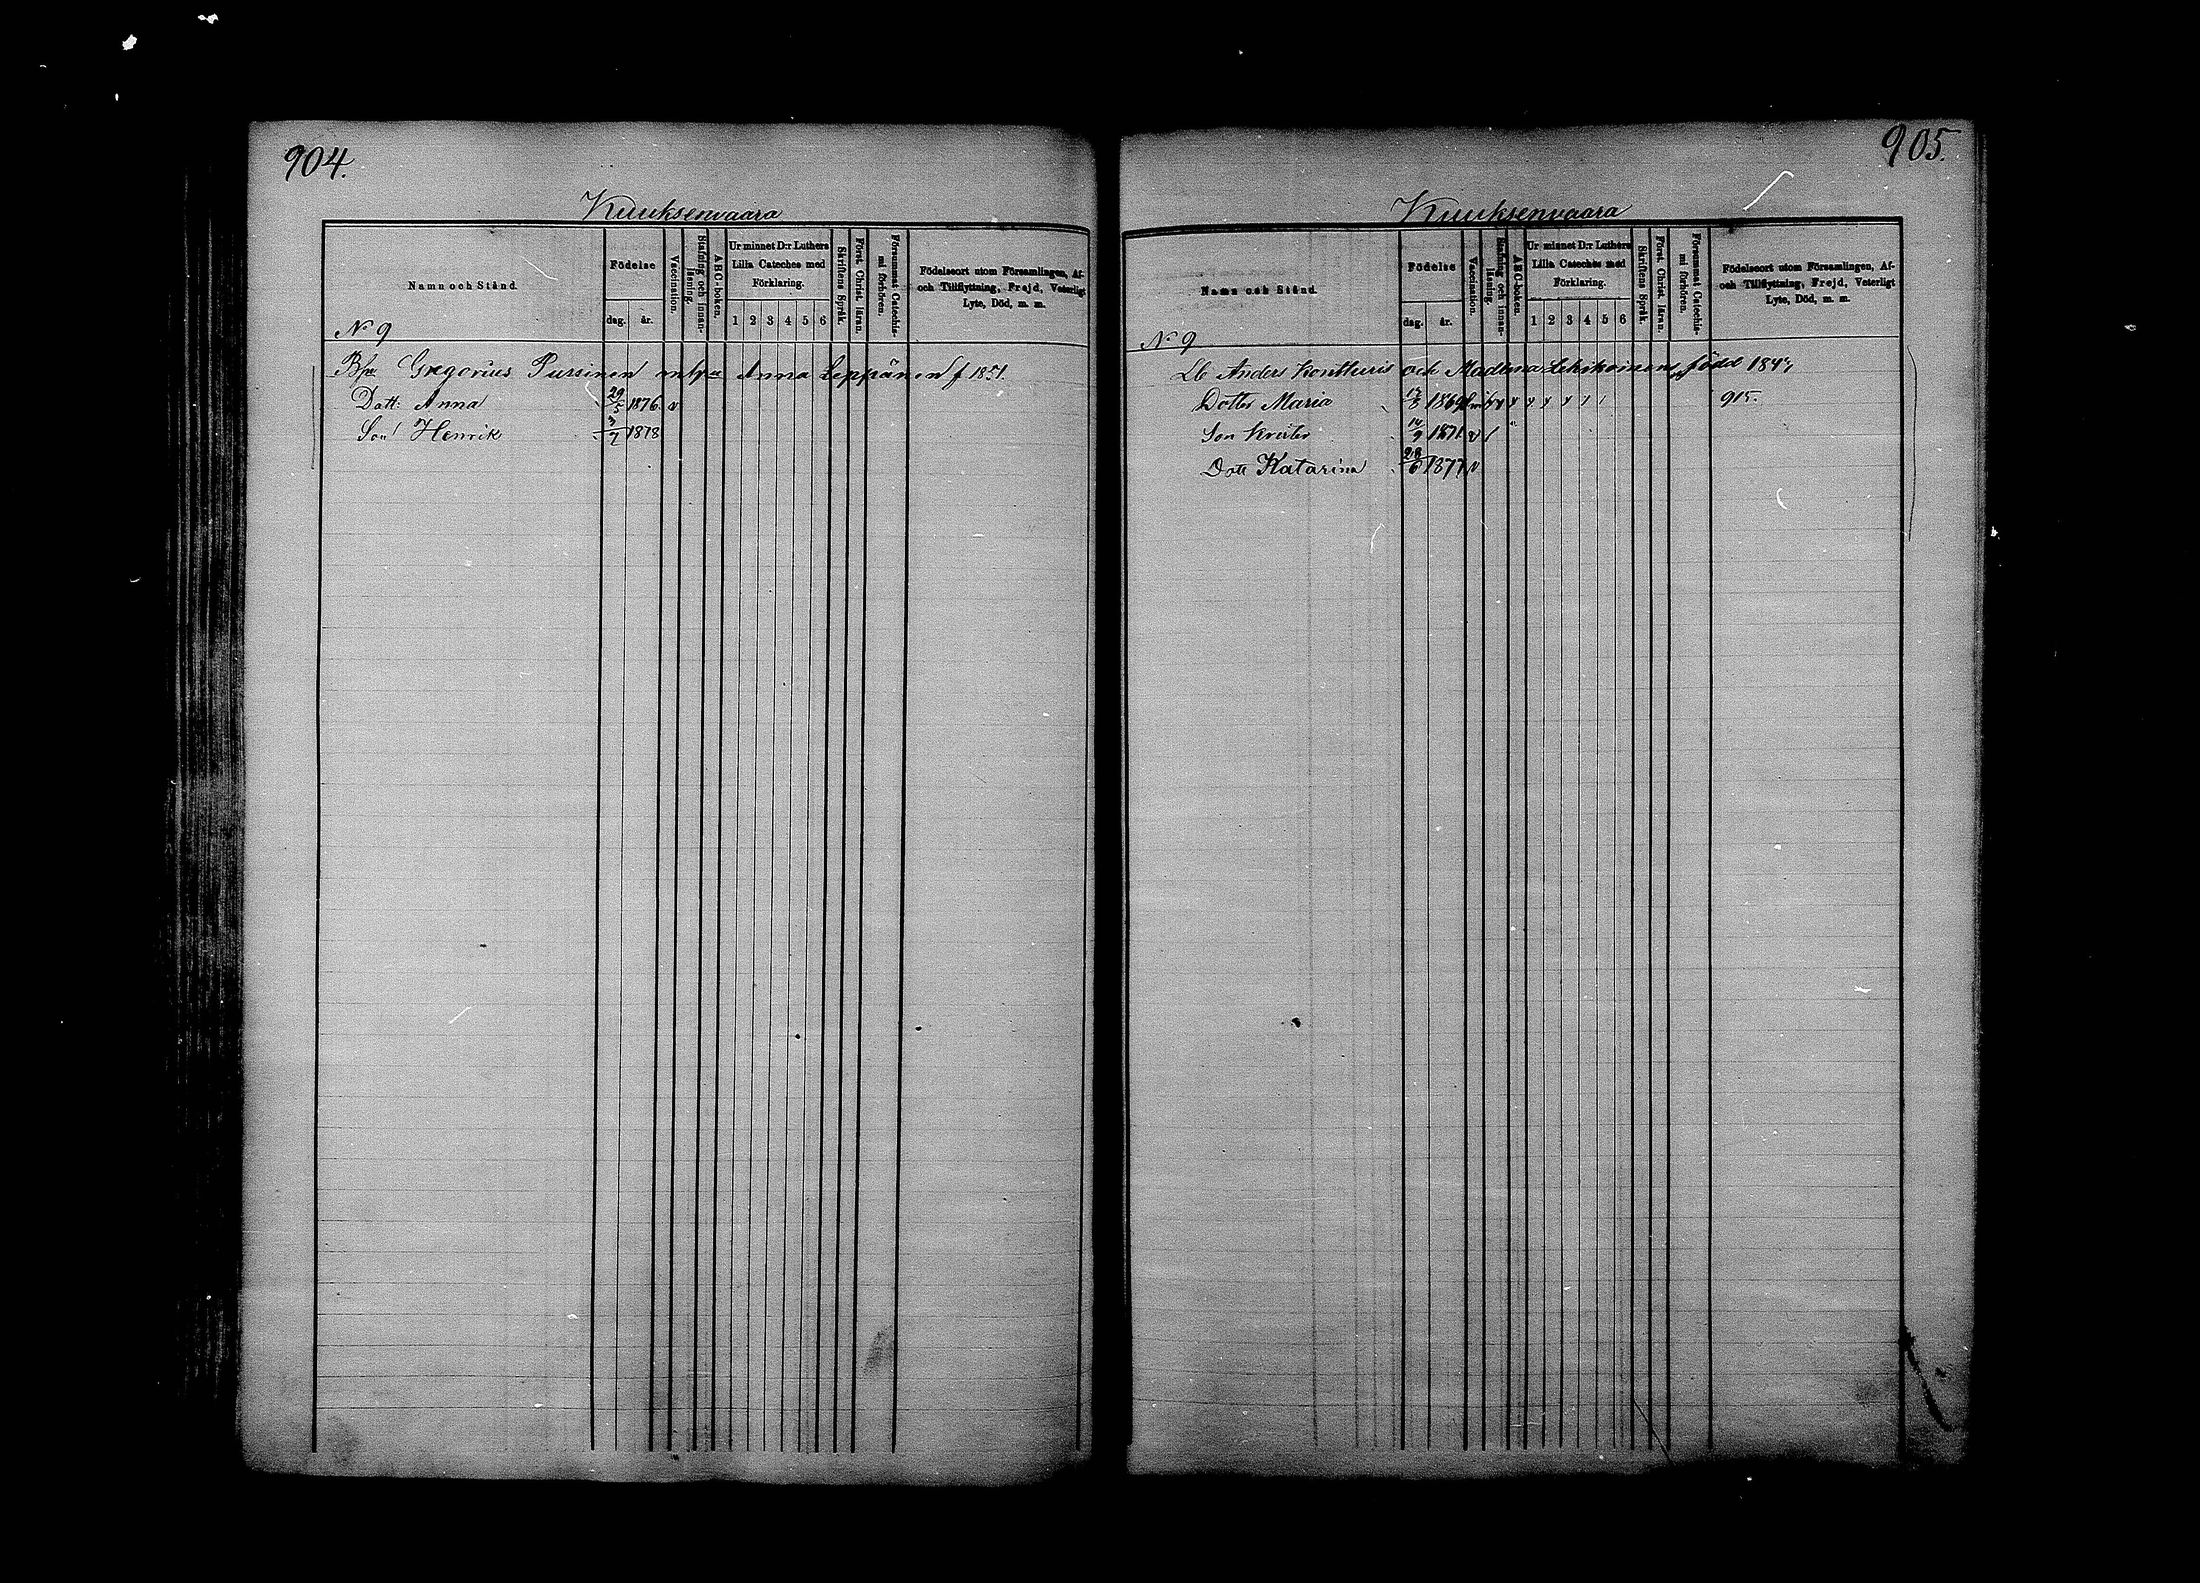 904.
Kuuksenvaara
Namn och Stånd.
Födelse
dag. år.
Vaccination.
Stafning och innan-
läsning.
ABC-boken.
Ur minnet D:r Luthers
Lilla Cateches med
Förklaring.
1 2 3 4 5 6
Skriftens Språk.
Först. Christ. läran.
Försummat Catechis-
mi förhören.
Födelseort utom Församlingen, Af-
och Tillflyttning, Frejd, Veterligt
Lyte, Död, m. m.
No 9
Gregorius Pursinen Anna Leppänen f 1851.
Dott: Anna 29/5 1876. v
Son Henrik 3/7 1878
905.
Kuuksenvaara
Namn och Stånd.
Födelse
dag. år.
Vaccination.
Stafning och innan-
läsning.
ABC-boken.
Ur minnet D:r Luthers
Lilla Cateches med
Förklaring.
1 2 3 4 5 6
Skriftens Språk.
Först. Christ. läran.
Försummat Catechis-
mi förhören.
Födelseort utom Församlingen, Af-
och Tillflyttning, Frejd, Veterligt
Lyte, Död, m. m.
No 9
Lb Anders Kontturis och Madlena född
Dotter Maria 1869 915.
Son 14/9 1871. v
Dott Katarina 28/6 1877 v